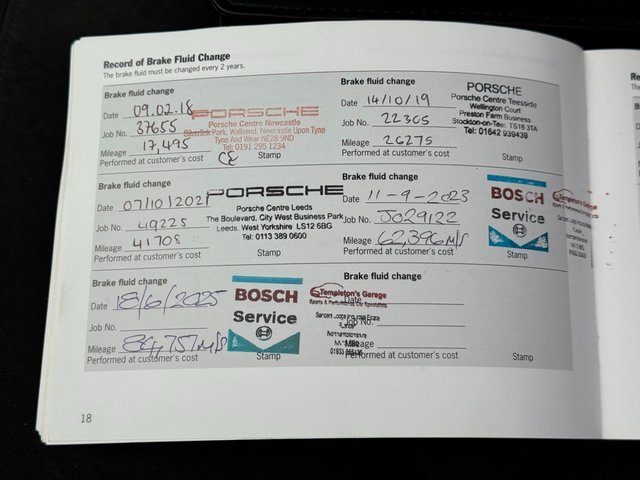 Record of Brake Fluid Change
The brake fluid must be changed every 2 years.
Brake fluid change
Date 09.02.18
Job No. 37655
Mileage 17,495
Performed at customer's cost
PORSCHE
Porsche Centre Newcastle
Silverlink Park, Wallsend, Newcastle Upon Tyne
Tyne And Wear NE28 9ND
Tel: 0191 295 1234
Stamp
Brake fluid change
Date 14/10/19
Job No. 22305
Mileage 26275
Performed at customer's cost
PORSCHE
Porsche Centre Teesside
Wellington Court
Preston Farm Business
Stockton-on-Tee: TS18 3TA
Tel: 01642 939439
Stamp
Brake fluid change
Date 07/10/2021
Job No. 49225
Mileage 41708
Performed at customer's cost
PORSCHE
Porsche Centre Leeds
The Boulevard, City West Business Park
Leeds, West Yorkshire LS12 6BG
Tel: 0113 389 0600
Stamp
Brake fluid change
Date 11-9-2023
Job No. J029122
Mileage 62,396 M/S
Performed at customer's cost
BOSCH
Service
Stamp
Brake fluid change
Date 18/6/2025
Job No.
Mileage 84,757 M/S
Performed at customer's cost
BOSCH
Service
Templeton's Garage
Stamp
Brake fluid change
Date
Job No.
Mileage
Performed at customer's cost
Stamp
18